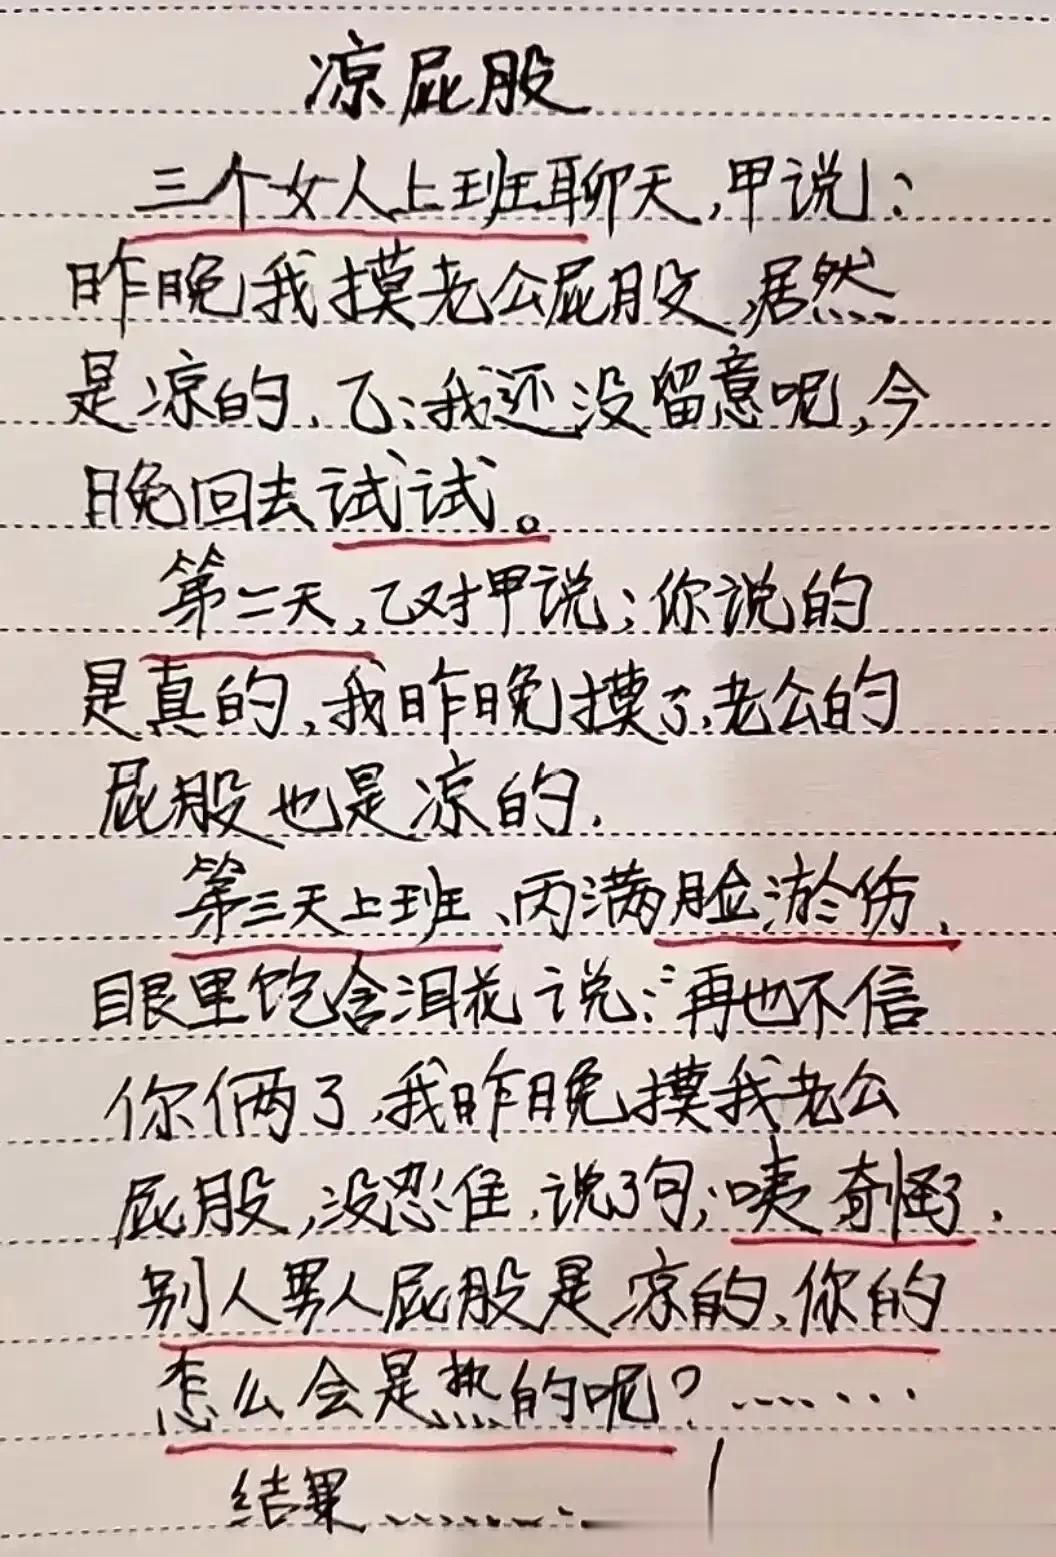 凉屁股
三个女人上班聊天,甲说:
昨晚我摸老公屁股,居然
是凉的,乙:我还没留意呢,今
晚回去试试。
第二天,乙对甲说:你说的
是真的,我昨晚摸了,老公的
屁股也是凉的.
第三天上班、丙满脸淤伤,
眼里饱含泪花说:"再也不信
你俩了,我昨晚摸我老公
屁股,没忍住,说了句;咦奇怪了,
别人男人屁股是凉的,你的
怎么会是热的呢?……
结果………